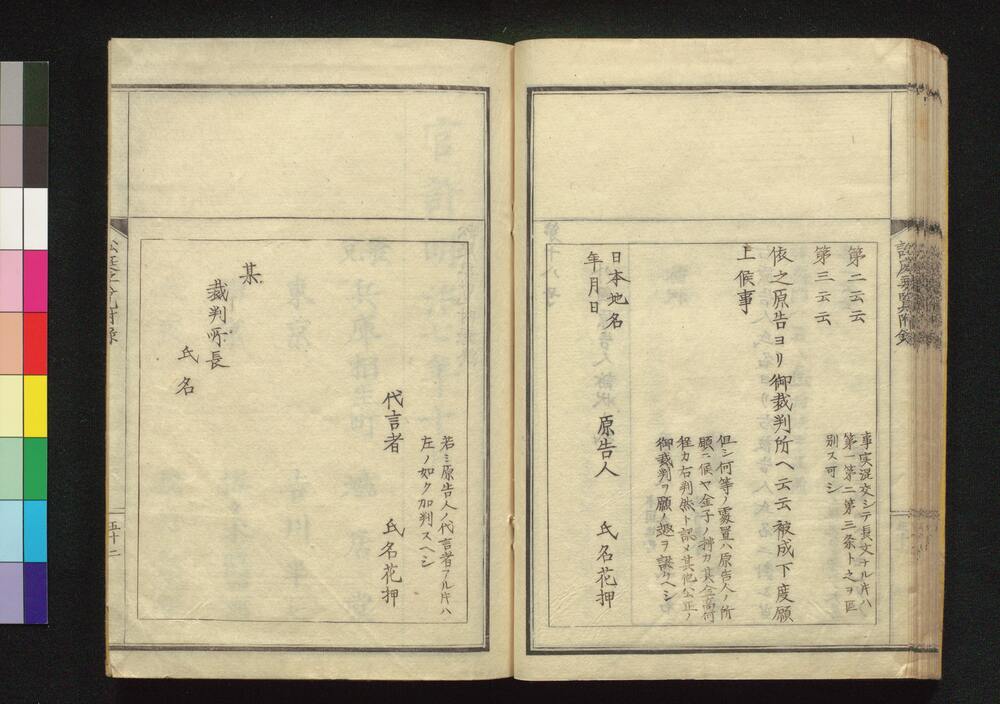 第二云云
第三云云
事実混交シテ長文ナル片ハ
第一第二第三条ト之ヲ区
別ス可シ
依之原告ヨリ御裁判所ヘ云云被成下度願
上候事
但シ何等ノ處置ハ原告人ノ所
願ニ候ヤ金子ノ拂カ其金高何
程カ右判然ト認メ其他公正ノ
御裁判ヲ願ノ趣ヲ
日本地名
年月日
原告人 氏名花押
若シ原告人ノ代言者アル片ハ
左ノ如ク加判スヘシ
代言者 氏名花押
某
裁判所長
氏名
五十二